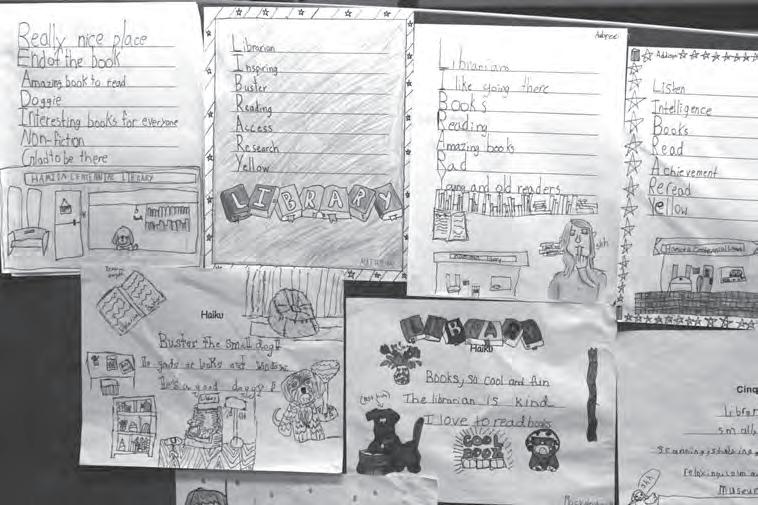 Really nice place
End of the book
Amazing book to read
Doggie
Interesting books for everyone
Non-fiction
Glad to be there
HAMIOTA CENTENNIAL LIBRARY
Librarian
Inspiring
Buster
Reading
Access
Research
Yellow
LIBRARY
Librarians
I like going there
Books
Reading
Amazing books
Rad
Young and old readers
Centennial Library
shh
Listen
Intelligence
Books
Read
Achievement
Reread
Yellow
Hamiota Centennial Library
Haiku
Buster the small dog!
books out window
He's a good doggy!
LIBRARY
Haiku
Books, so cool and fun
The librarian is kind
I love to read books
COOL
BOOK
Cinq
librar
small,
relaxing, calm a
museum
shh